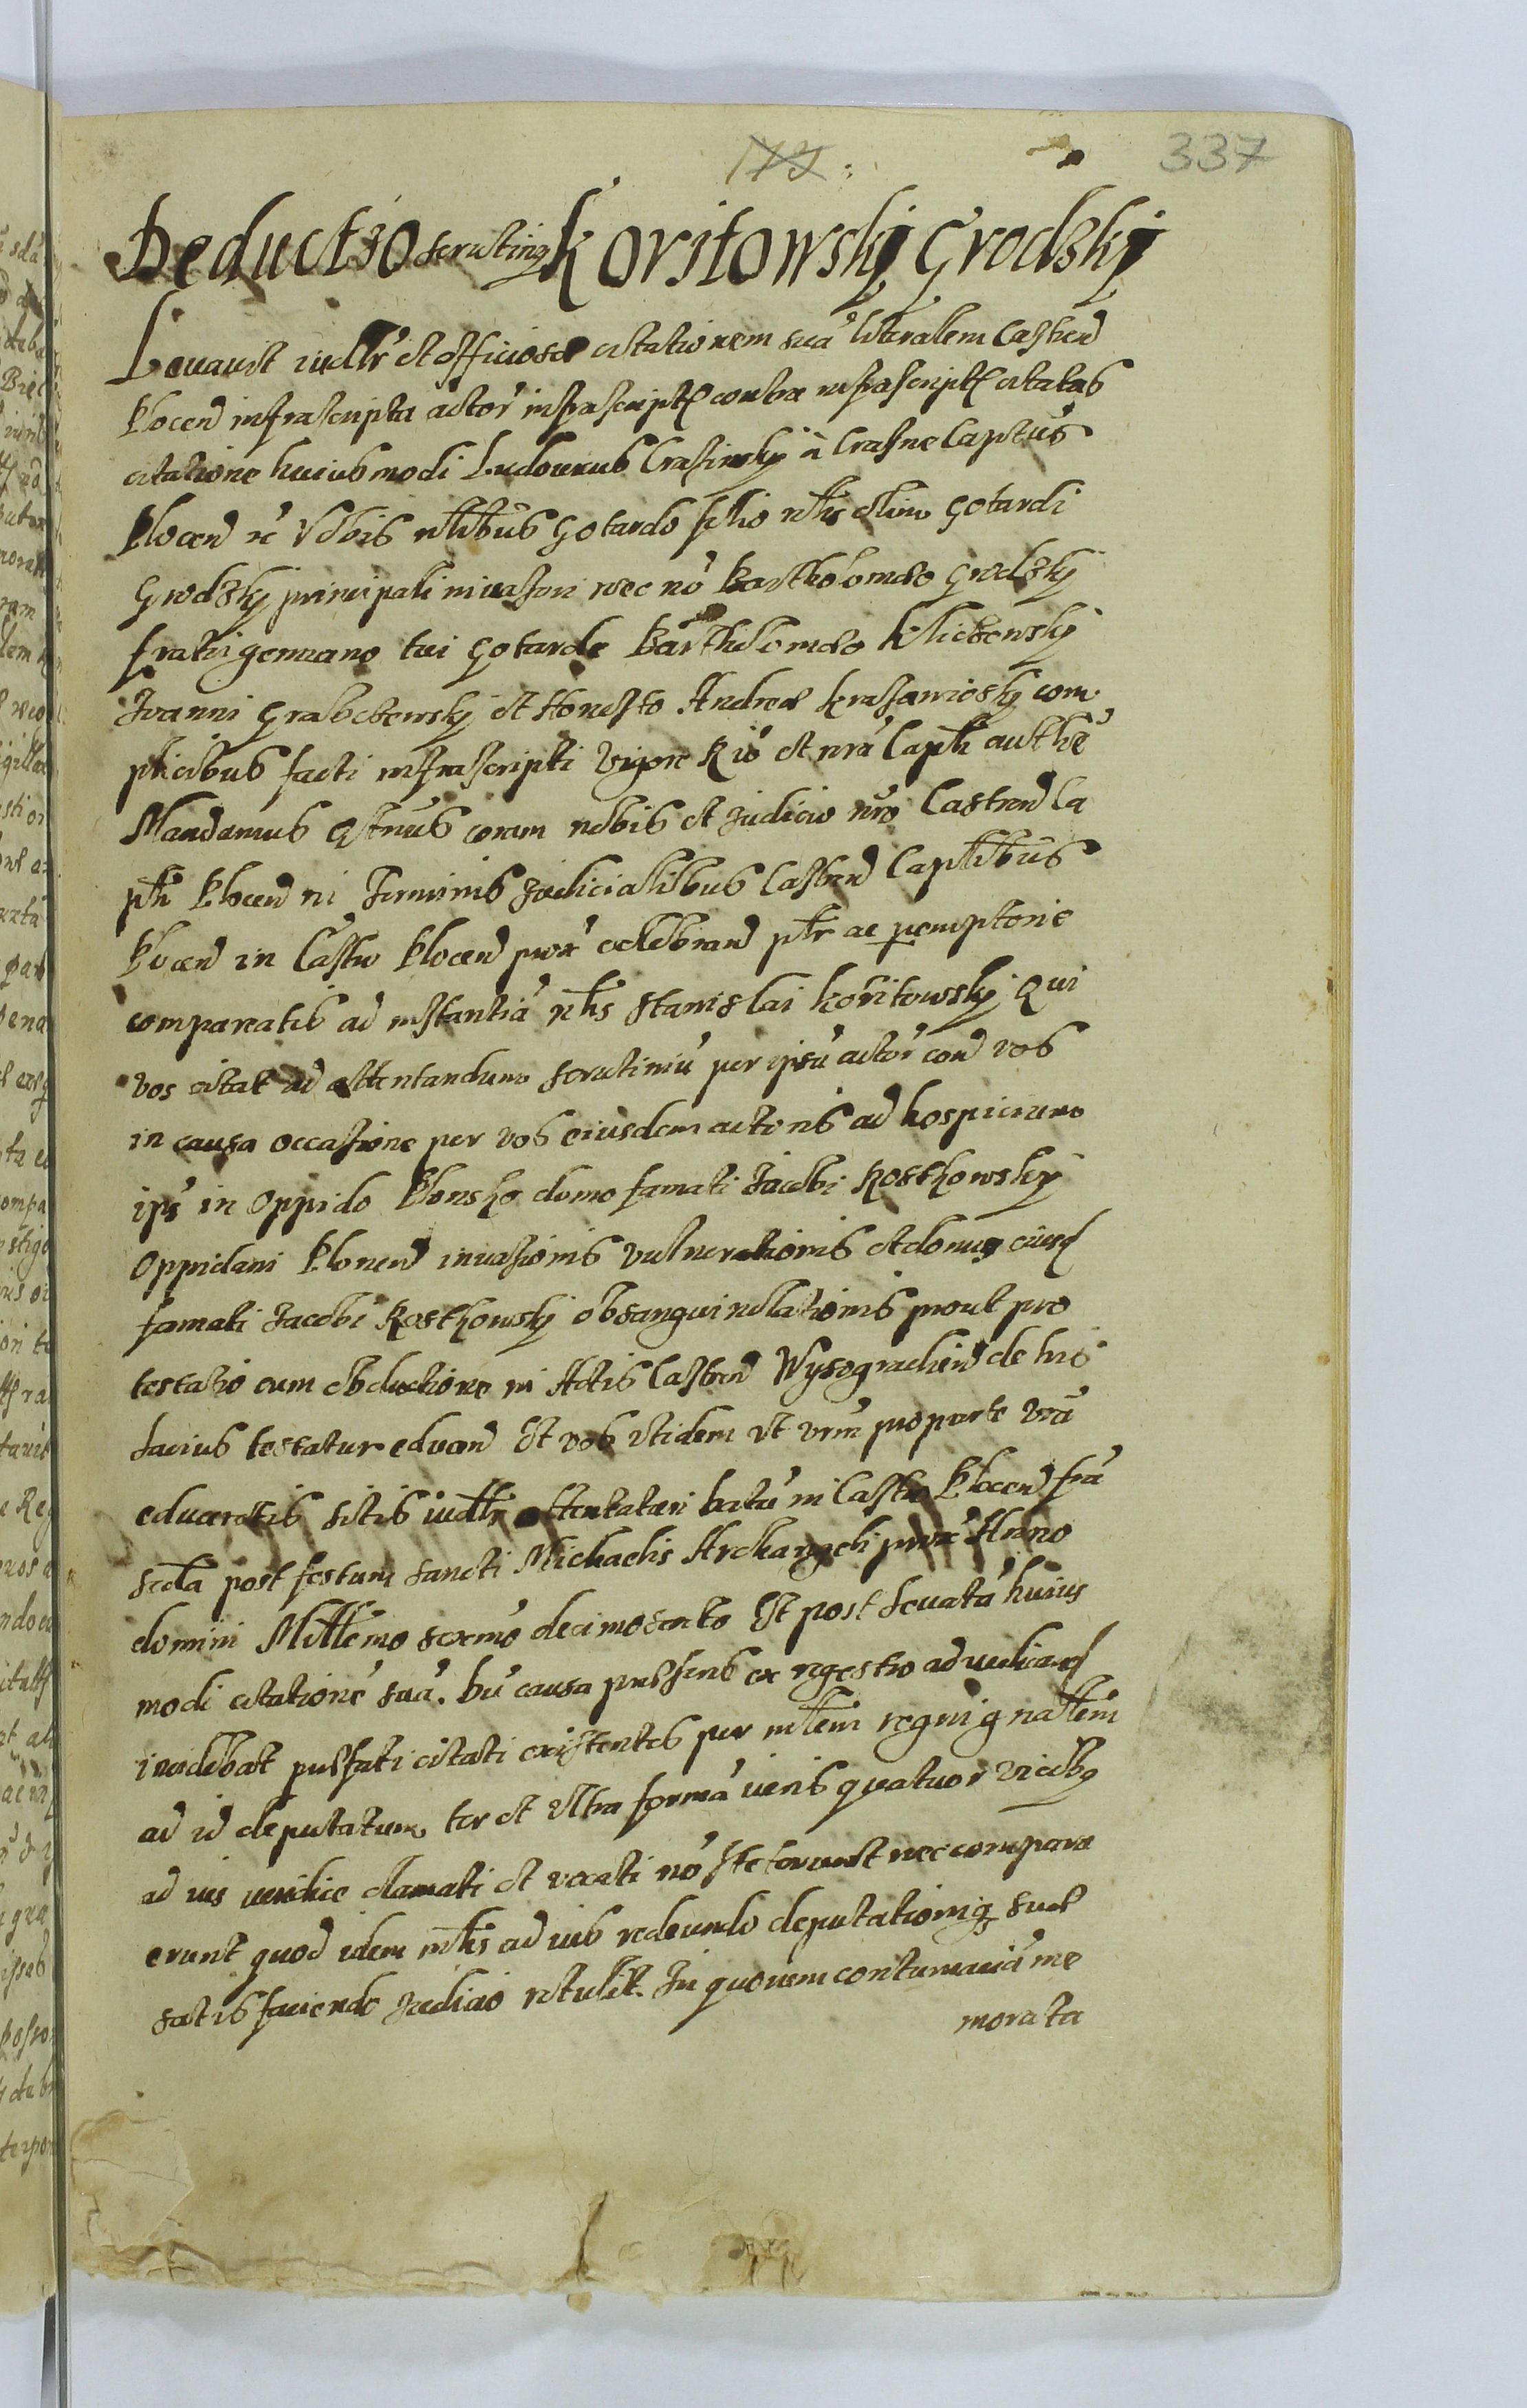 179.
337
Deductio scrutinÿ Koritowskÿ Grodzkÿ
Levavit iudlr et officiose citationem suã literalem Castren
Plocen infrascripta actor infrascripto contra infrascriptos citatos
citatione huiusmodi Ludovicus Crasinskÿ à Crasne Captus
Plocen rc Vobis nlibus Gotardo filio nlis olim Gotardi
Grodzkÿ principali invasori nec nõ Bartholomeo Grodzkÿ
fratri germano tui Gotarde Bartholomeo Klicewskÿ
Joanni Grabolewskÿ et Honesto Andreæ com
plicibus facti infrascripti vigore Rió et nrã Captli authe
Mandamus qtnus coram nobis et Judicio nro Castren Ca
ptli Plocen in Terminis Judicialibus Castren Captlibus
Plocen in Castro Plocen prox celebrand ptr ac peremptorie
compareatis ad instantiã nlis Stanislai Koritowskÿ Qui
vos citat ad attentandum scrutiniũ per ipsũ actor con vos
in causa occasione per vos eiusdem actoris ad hospicium
ips in Oppido Plonsko domo famati Jacobi Rostkowskÿ
Oppidani Plonen invasionis vulnerationis et domus eiusd
famati Jacobi Rostkowskÿ obsanguinolationis prout pro
testatio cum obductione in Actis Castren Wysogradien de his
lacius testatur educen Et vos itidem ut vrm pro parte vrã
educeretis sitis iudlr attentaturi in Castro Plocen fria
scda post festum Sancti Michaelis Archangeli prox Anno
domini Millemo sexmo decimosexto Et post levatã huius
modi citationẽ suã. dũ causa præsens ex regestro ad iudicand
incidebat præfati citati existentes per mlem regni gnalem
ad id deputatum ter et ultra formã iuris quatuor vicibq
ad ius iuridice clamati et vocati nõ steterunt nec compare
erunt quod idem mlis ad ius redeundo deputationiq suæ
satis faciendo Judicio retulit. In quorum contumaciã me
morata